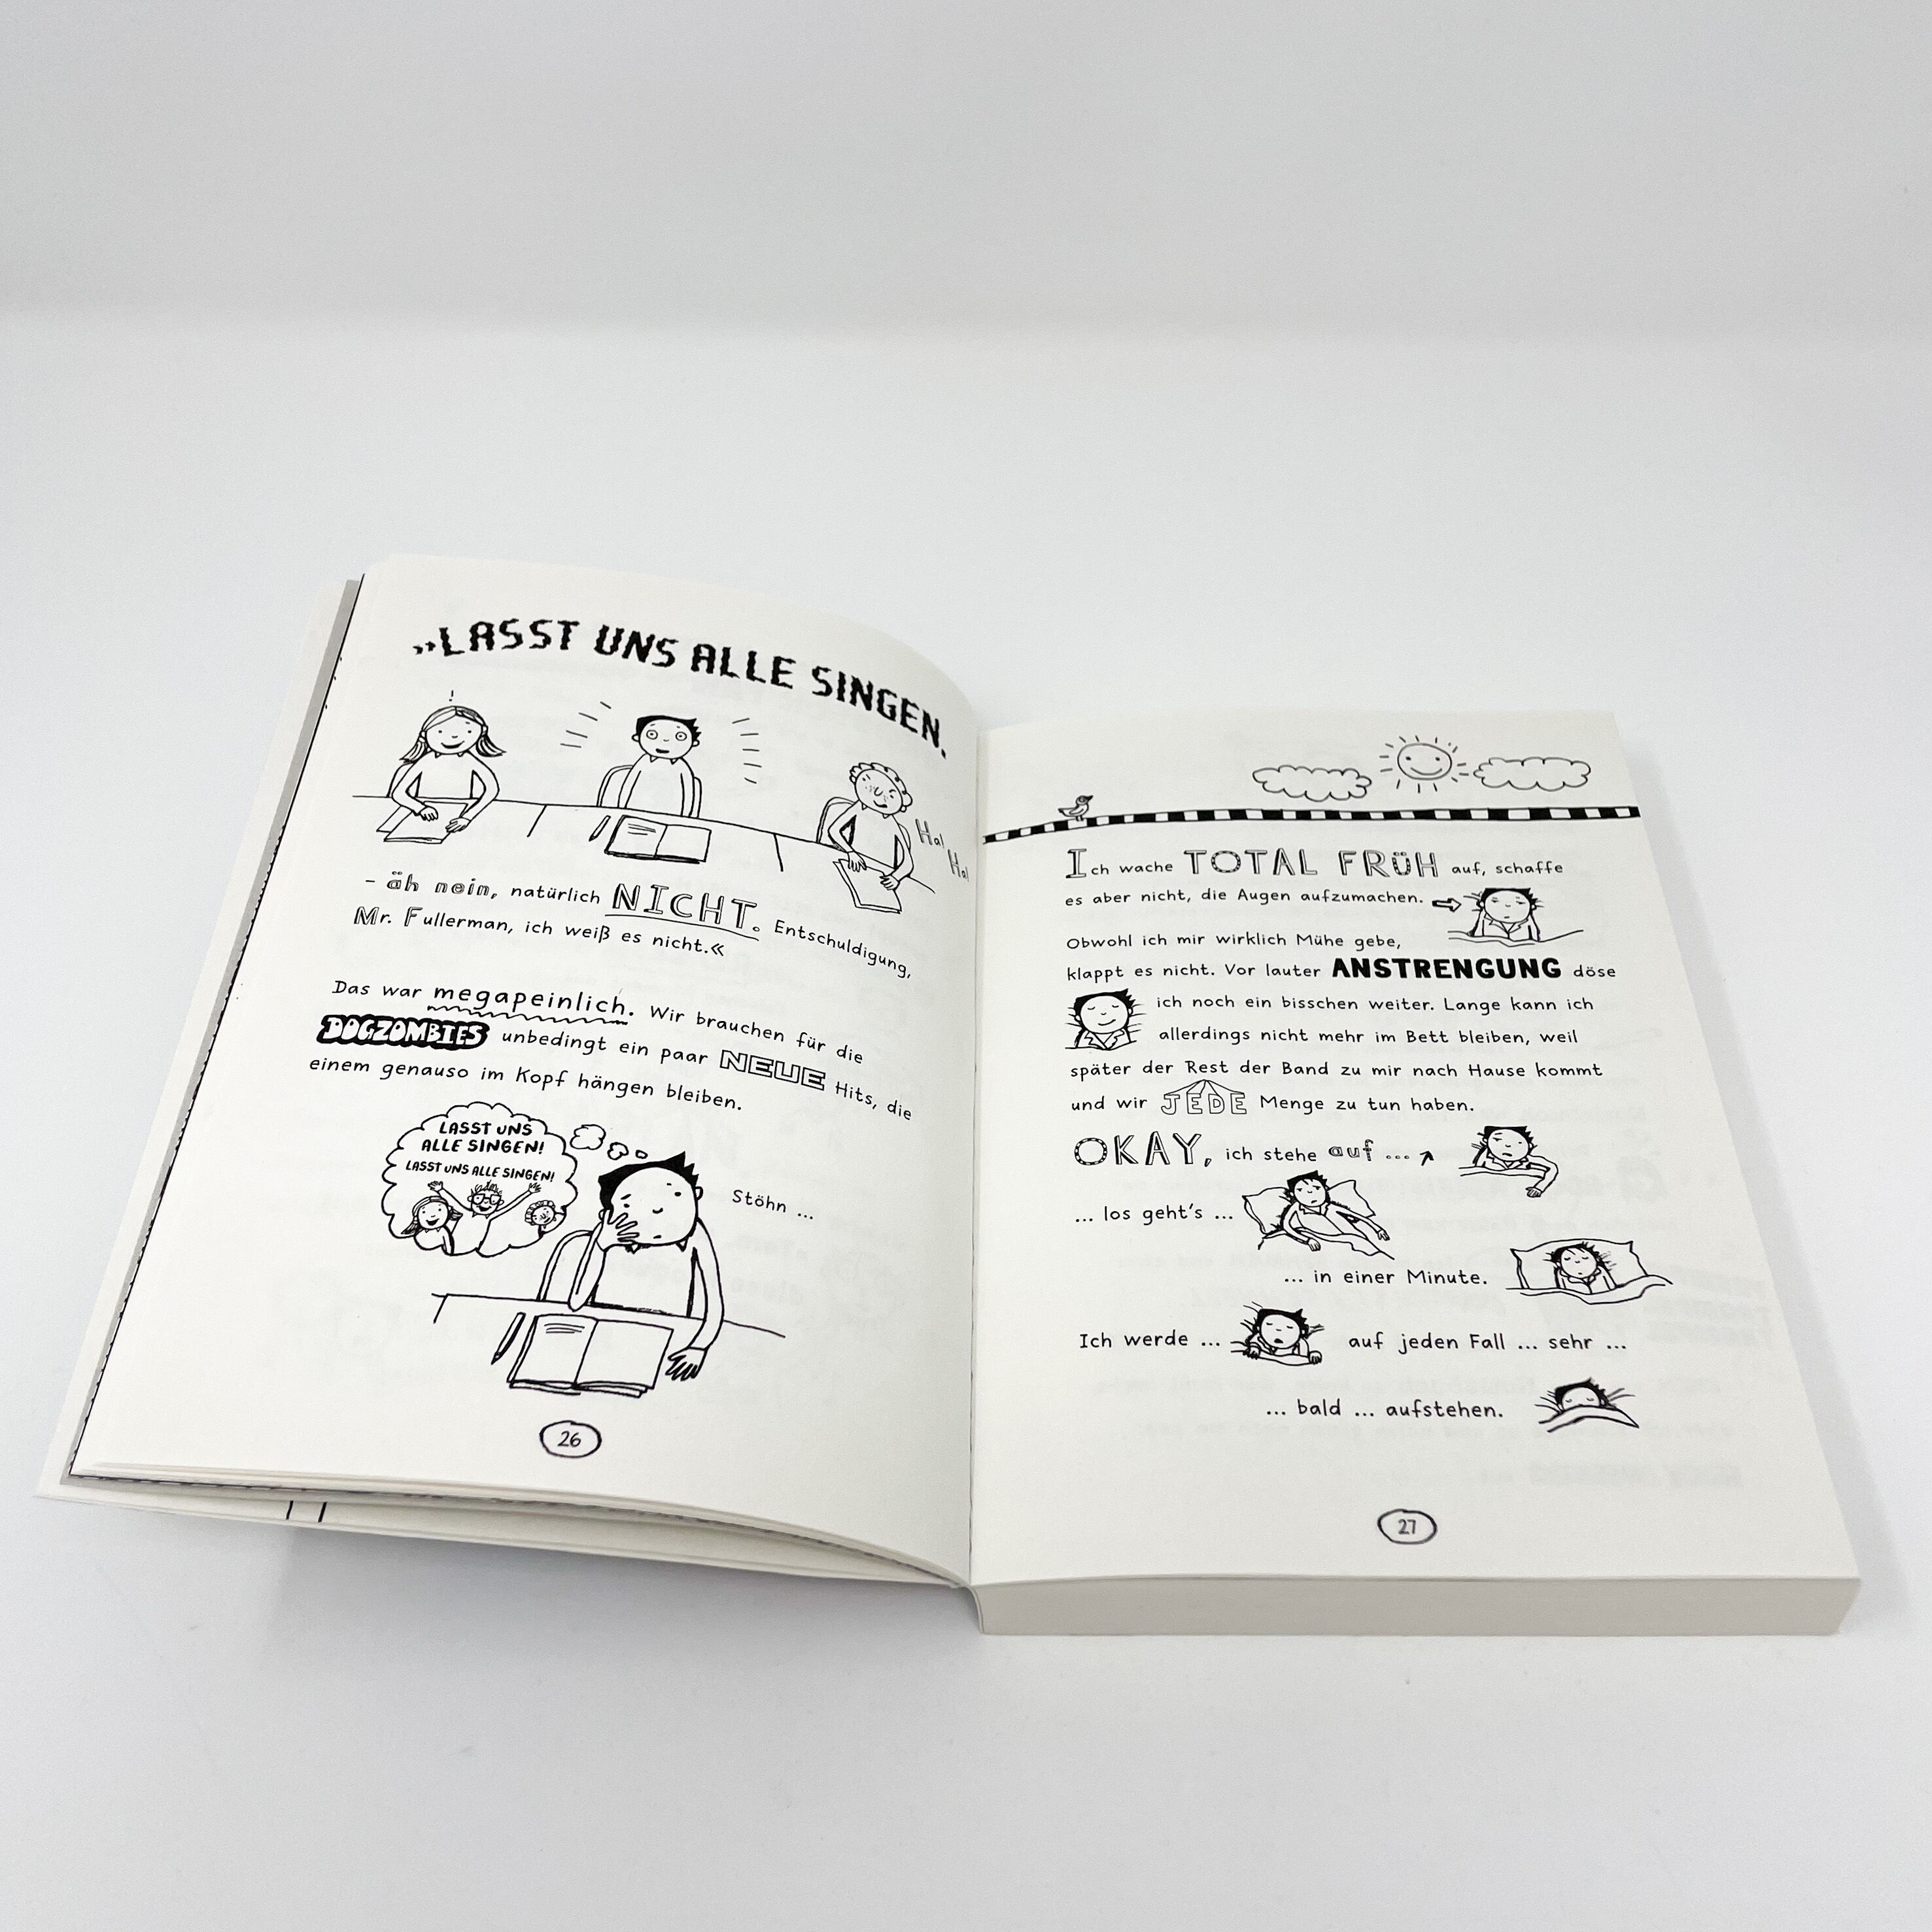 »LASST UNS ALLE SINGEN.
Ha!
Ha!
- äh nein, natürlich NICHT. Entschuldigung,
Mr. Fullerman, ich weiß es nicht.«
Das war megapeinlich. Wir brauchen für die
DOGZOMBIES unbedingt ein paar NEUE Hits, die
einem genauso im Kopf hängen bleiben.
LASST UNS
ALLE SINGEN!
LASST UNS ALLE SINGEN!
Stöhn ...
26
Ich wache TOTAL FRÜH auf, schaffe
es aber nicht, die Augen aufzumachen.
Obwohl ich mir wirklich Mühe gebe,
klappt es nicht. Vor lauter ANSTRENGUNG döse
ich noch ein bisschen weiter. Lange kann ich
allerdings nicht mehr im Bett bleiben, weil
später der Rest der Band zu mir nach Hause kommt
und wir JEDE Menge zu tun haben.
OKAY, ich stehe auf ...
... los geht's ...
... in einer Minute.
Ich werde ... auf jeden Fall ... sehr ...
... bald ... aufstehen.
27